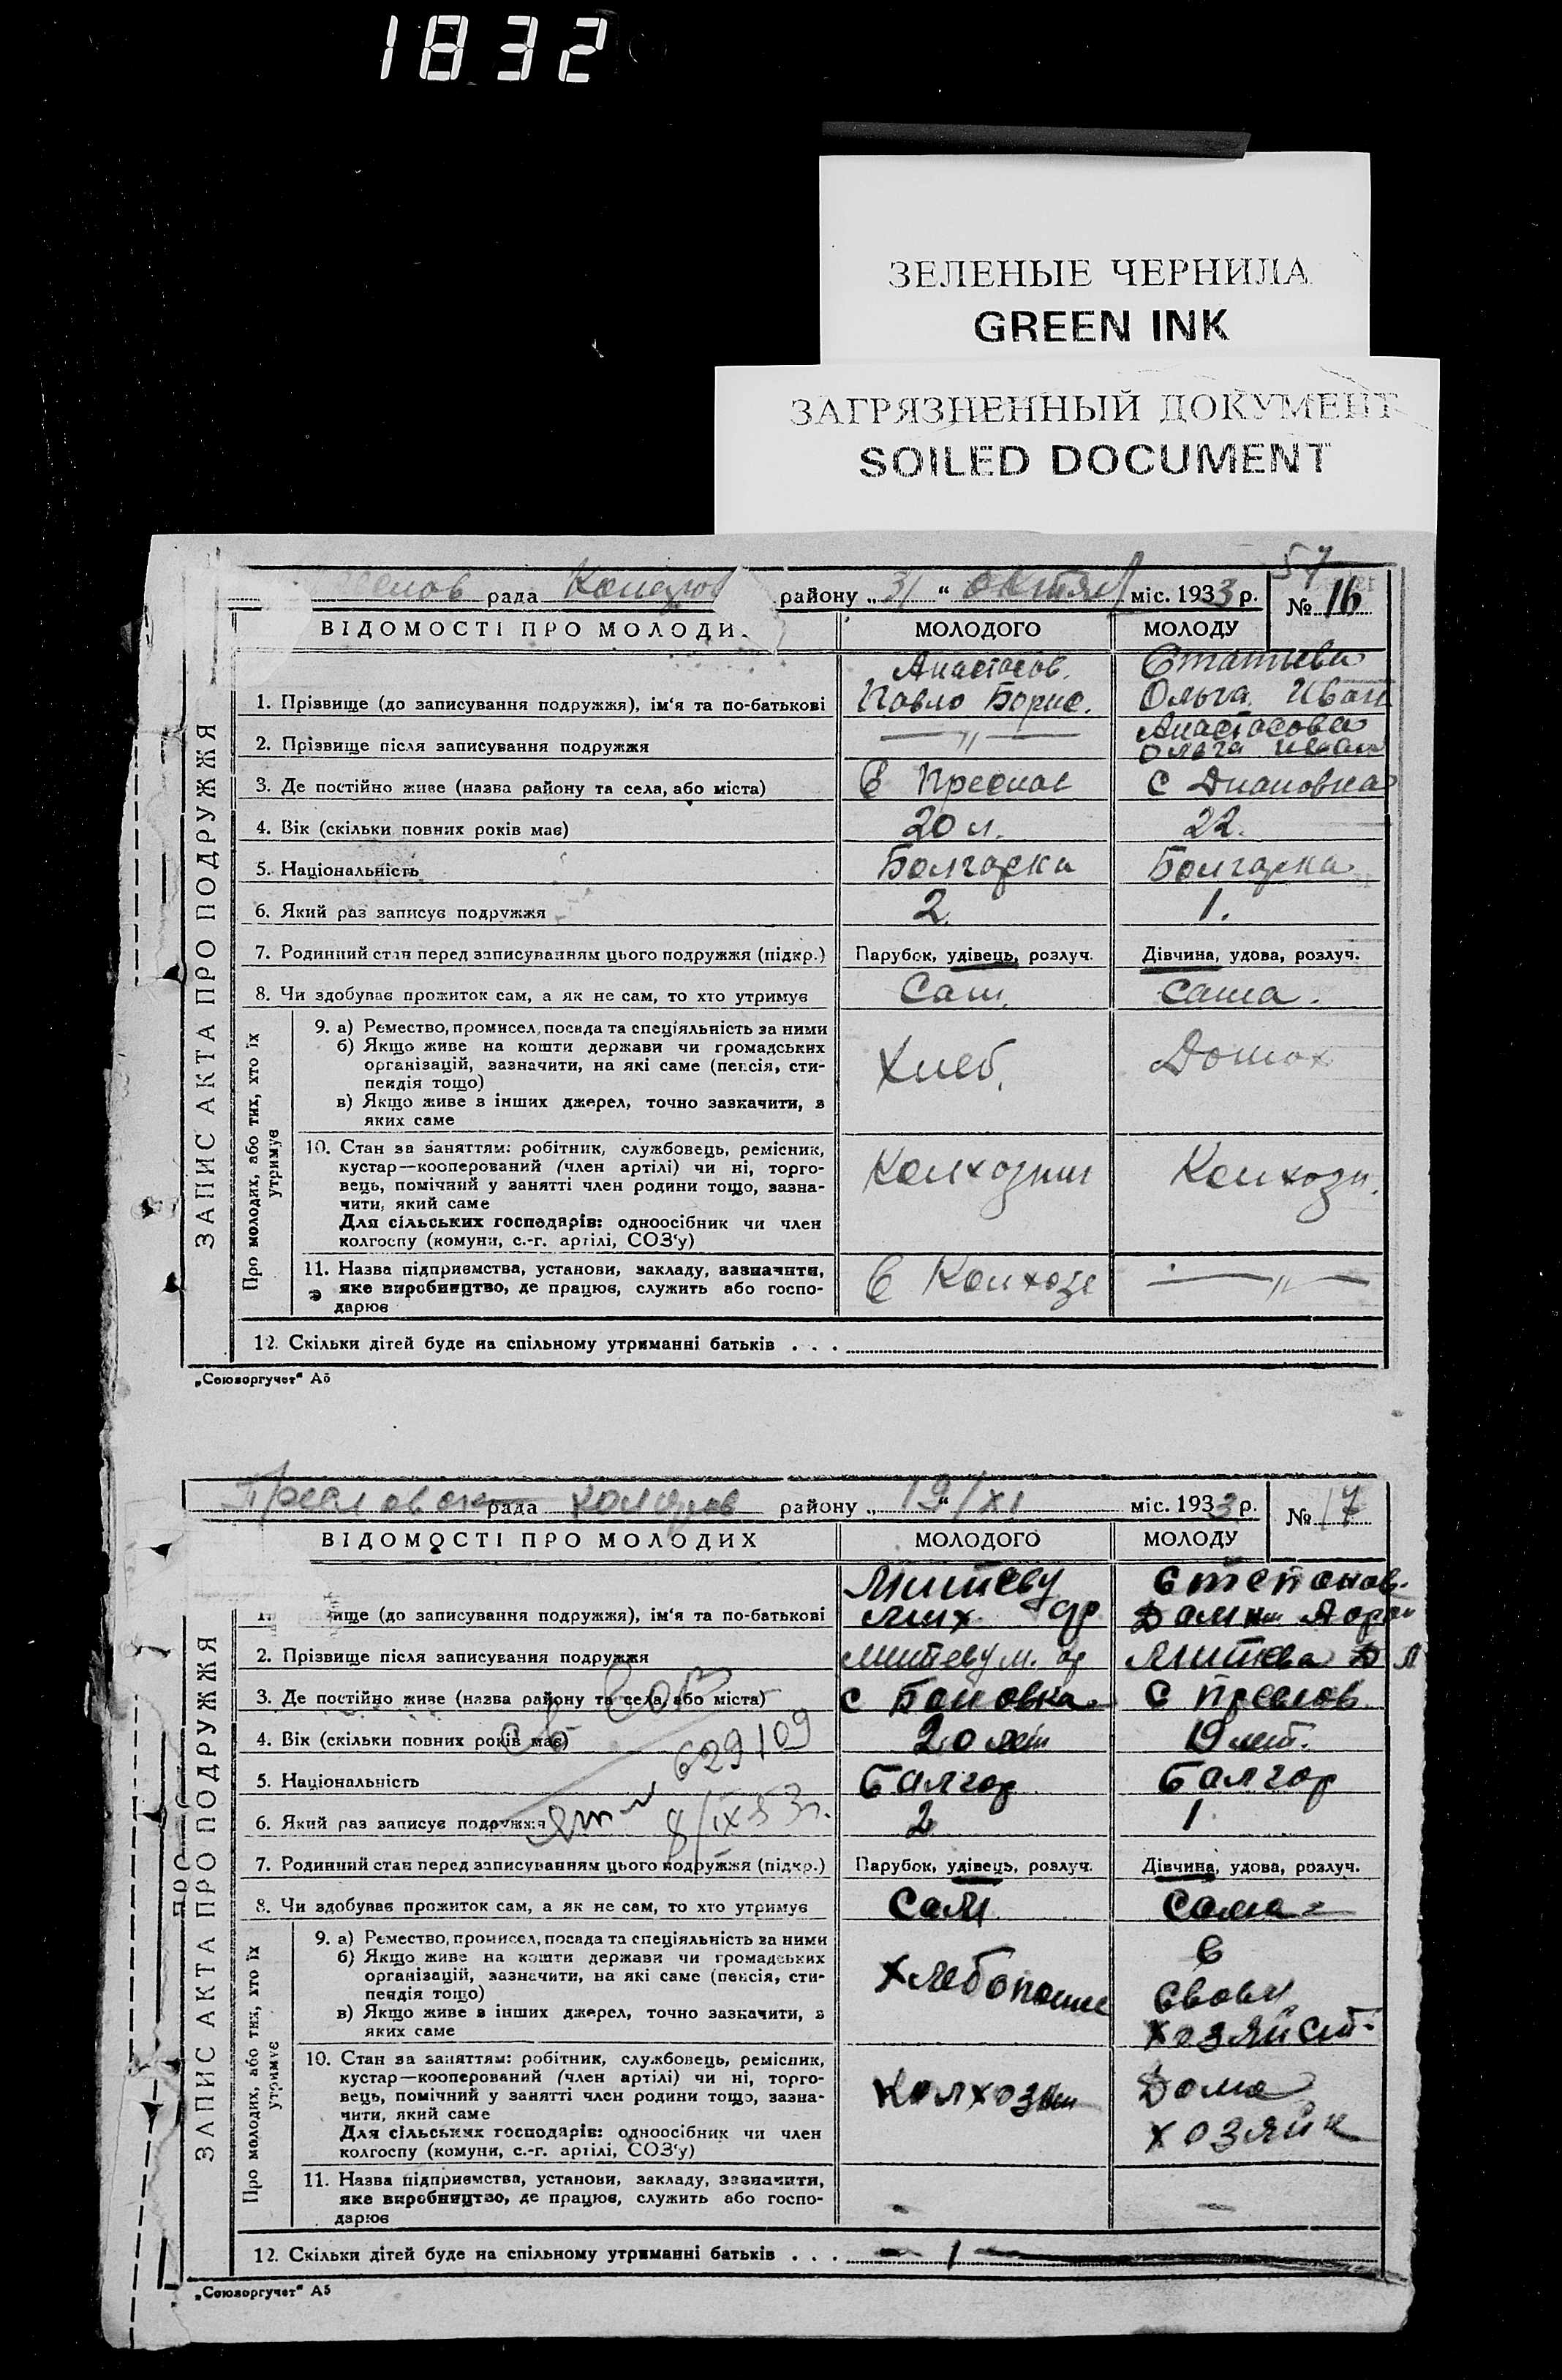 1832
ЗЕЛЕНЫЕ ЧЕРНИЛА
GREEN INK
ЗАГРЯЗНЕННЫЙ ДОКУМЕНТ
SOILED DOCUMENT
57
рада району „31“ октяб міс. 1933 р. № 16
ВІДОМОСТІ ПРО МОЛОДИ МОЛОДОГО МОЛОДУ
Анастасов. Статиева
1. Прізвище (до записування подружжя), ім'я та по-батькові Павло Борис. Ольга Иван
Анастасова
2. Прізвище після записування подружжя —〃— Ольга Иван
3. Де постійно живе (назва району та села, або міста) С Преслав С Диановка
4. Вік (скільки повних років має) 20 л. 22.
5. Національність Болгарка Болгарка
6. Який раз записує подружжя 2. 1.
7. Родинний стан перед записуванням цього подружжя (підкр.) Парубок, удівець, розлуч. Дівчина, удова, розлуч.
8. Чи здобуває прожиток сам, а як не сам, то хто утримує Сам. Сама.
ЗАПИС АКТА ПРО ПОДРУЖЖЯ
Про молодих, або тих, хто їх утримує
9. а) Ремество, промисел, посада та спеціяльність за ними
б) Якщо живе на кошти держави чи громадських
організацій, зазначити, на які саме (пенсія, сти-
пендія тощо) Хлеб. Домох
в) Якщо живе з інших джерел, точно зазначити, з
яких саме
10. Стан за заняттям: робітник, службовець, ремісник,
кустар—кооперований (член артілі) чи ні, торго-
вець, помічний у занятті член родини тощо, зазна- Колхозник Колхозн.
чити, який саме
Для сільських господарів: одноосібник чи член
колгоспу (комуни, с.-г. артілі, СОЗ'у)
11. Назва підприємства, установи, закладу, зазначити,
яке виробництво, де працює, служить або госпо- В Колхозе —〃—
дарює
12. Скільки дітей буде на спільному утриманні батьків . . .
„Союзоргучет“ А5
Преславска рада району „19/XI міс. 1933 р. № 17
ВІДОМОСТІ ПРО МОЛОДИХ МОЛОДОГО МОЛОДУ
Митеву Степанов.
ище (до записування подружжя), ім'я та по-батькові Мих
2. Прізвище після записування подружжя Митеву М. Митева Д
3. Де постійно живе (назва району та села, або міста) С Преслов
4. Вік (скільки повних років має) 20 лет 19 лет.
629109
5. Національність Балгар Балгар
8/IX 53 г.
6. Який раз записує подружжя 2 1
7. Родинний стан перед записуванням цього подружжя (підкр.) Парубок, удівець, розлуч. Дівчина, удова, розлуч.
8. Чи здобуває прожиток сам, а як не сам, то хто утримує Сам Сама
ЗАПИС АКТА ПРО ПОДРУЖЖЯ
Про молодих, або тих, хто їх утримує
9. а) Ремество, промисел, посада та спеціяльність за ними В
б) Якщо живе на кошти держави чи громадських
організацій, зазначити, на які саме (пенсія, сти- Хлебопаше
пендія тощо) своем
в) Якщо живе з інших джерел, точно зазначити, з
яких саме хозяйст.
10. Стан за заняттям: робітник, службовець, ремісник,
кустар—кооперований (член артілі) чи ні, торго-
вець, помічний у занятті член родини тощо, зазна- Колхозник Дома
чити, який саме
Для сільських господарів: одноосібник чи член хозяйк
колгоспу (комуни, с.-г. артілі, СОЗ'у)
11. Назва підприємства, установи, закладу, зазначити,
яке виробництво, де працює, служить або госпо- - -
дарює
12. Скільки дітей буде на спільному утриманні батьків . . . — 1 —
„Союзоргучет“ А5